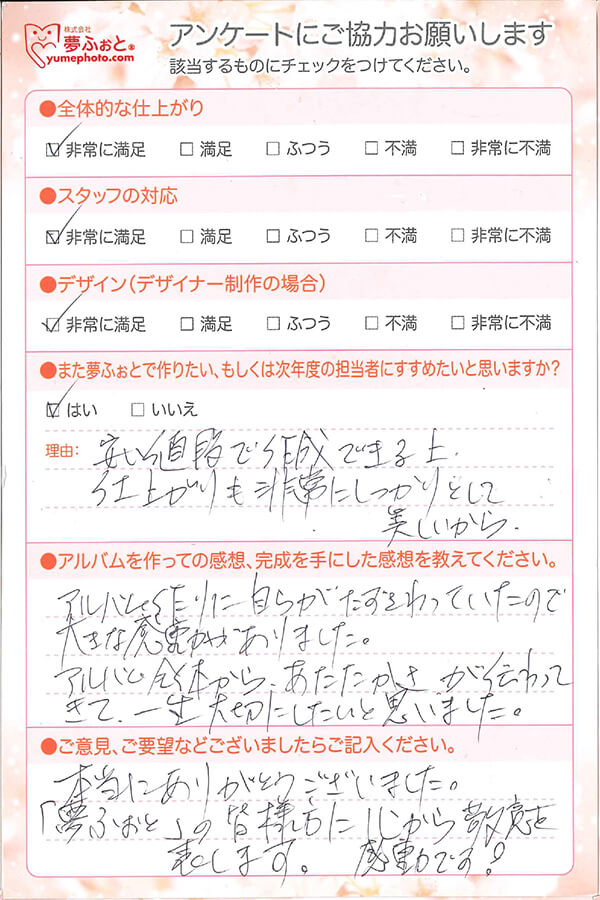 株式会社
夢ふぉと®
yumephoto.com
アンケートにご協力お願いします
該当するものにチェックをつけてください。
●全体的な仕上がり
☑ 非常に満足 □ 満足 □ ふつう □ 不満 □ 非常に不満
●スタッフの対応
☑ 非常に満足 □ 満足 □ ふつう □ 不満 □ 非常に不満
●デザイン(デザイナー制作の場合)
☑ 非常に満足 □ 満足 □ ふつう □ 不満 □ 非常に不満
●また夢ふぉとで作りたい、もしくは次年度の担当者にすすめたいと思いますか?
☑ はい □ いいえ
理由: 安い値段で作成できる上、
仕上がりも非常にしっかりとして
美しいから。
●アルバムを作っての感想、完成を手にした感想を教えてください。
アルバム作りに自らがたずさわっていたので
大きな感動がありました。
アルバム全体から、あたたかさが伝わって
きて、一生大切にしたいと思いました。
●ご意見、ご要望などございましたらご記入ください。
本当にありがとうございました。
「夢ふぉと」の皆様方に心から敬意を
表します。 感動です!